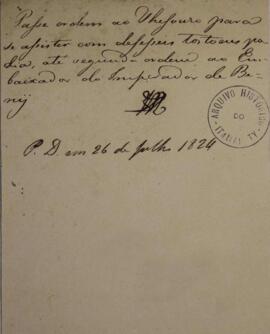 Passe ordem ao Thesouro para
se assistir com desesseis tostoens por
dia, até segunda ordem ao Em-
baixador do Imperador de Be-
nij
P. D. em 26 de Julho 1824
ARQUIVO HISTÓRICO
DO
ITAMARATY